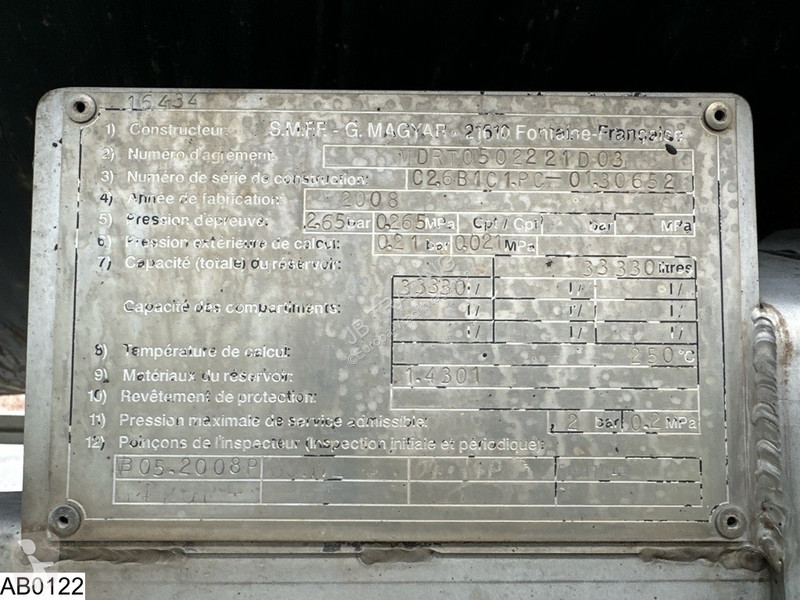 16434
1) Constructeur: S.M.F.F. - G. MAGYAR - 21610 Fontaine-Française
2) Numéro d'agrément: MDRT0502221D03
3) Numéro de série de construction: C26B1C1PC-0130652
4) Année de fabrication: 2008
5) Pression d'épreuve: 2.65 bar 0.265 MPa Cpt / Cpt bar MPa
6) Pression extérieure de calcul: 0.21 bar 0.021 MPa
7) Capacité (totale) du réservoir: 33330 litres
33330 l/ l/ l/
Capacité des compartiments: l/ l/ l/
l/ l/ l/
8) Température de calcul: 250 °C
9) Matériaux du réservoir: 1.4301
10) Revêtement de protection:
11) Pression maximale de service admissible: 2 bar 0.2 MPa
12) Poinçons de l'inspecteur (Inspection initiale et périodique):
B 05.2008P
AB0122